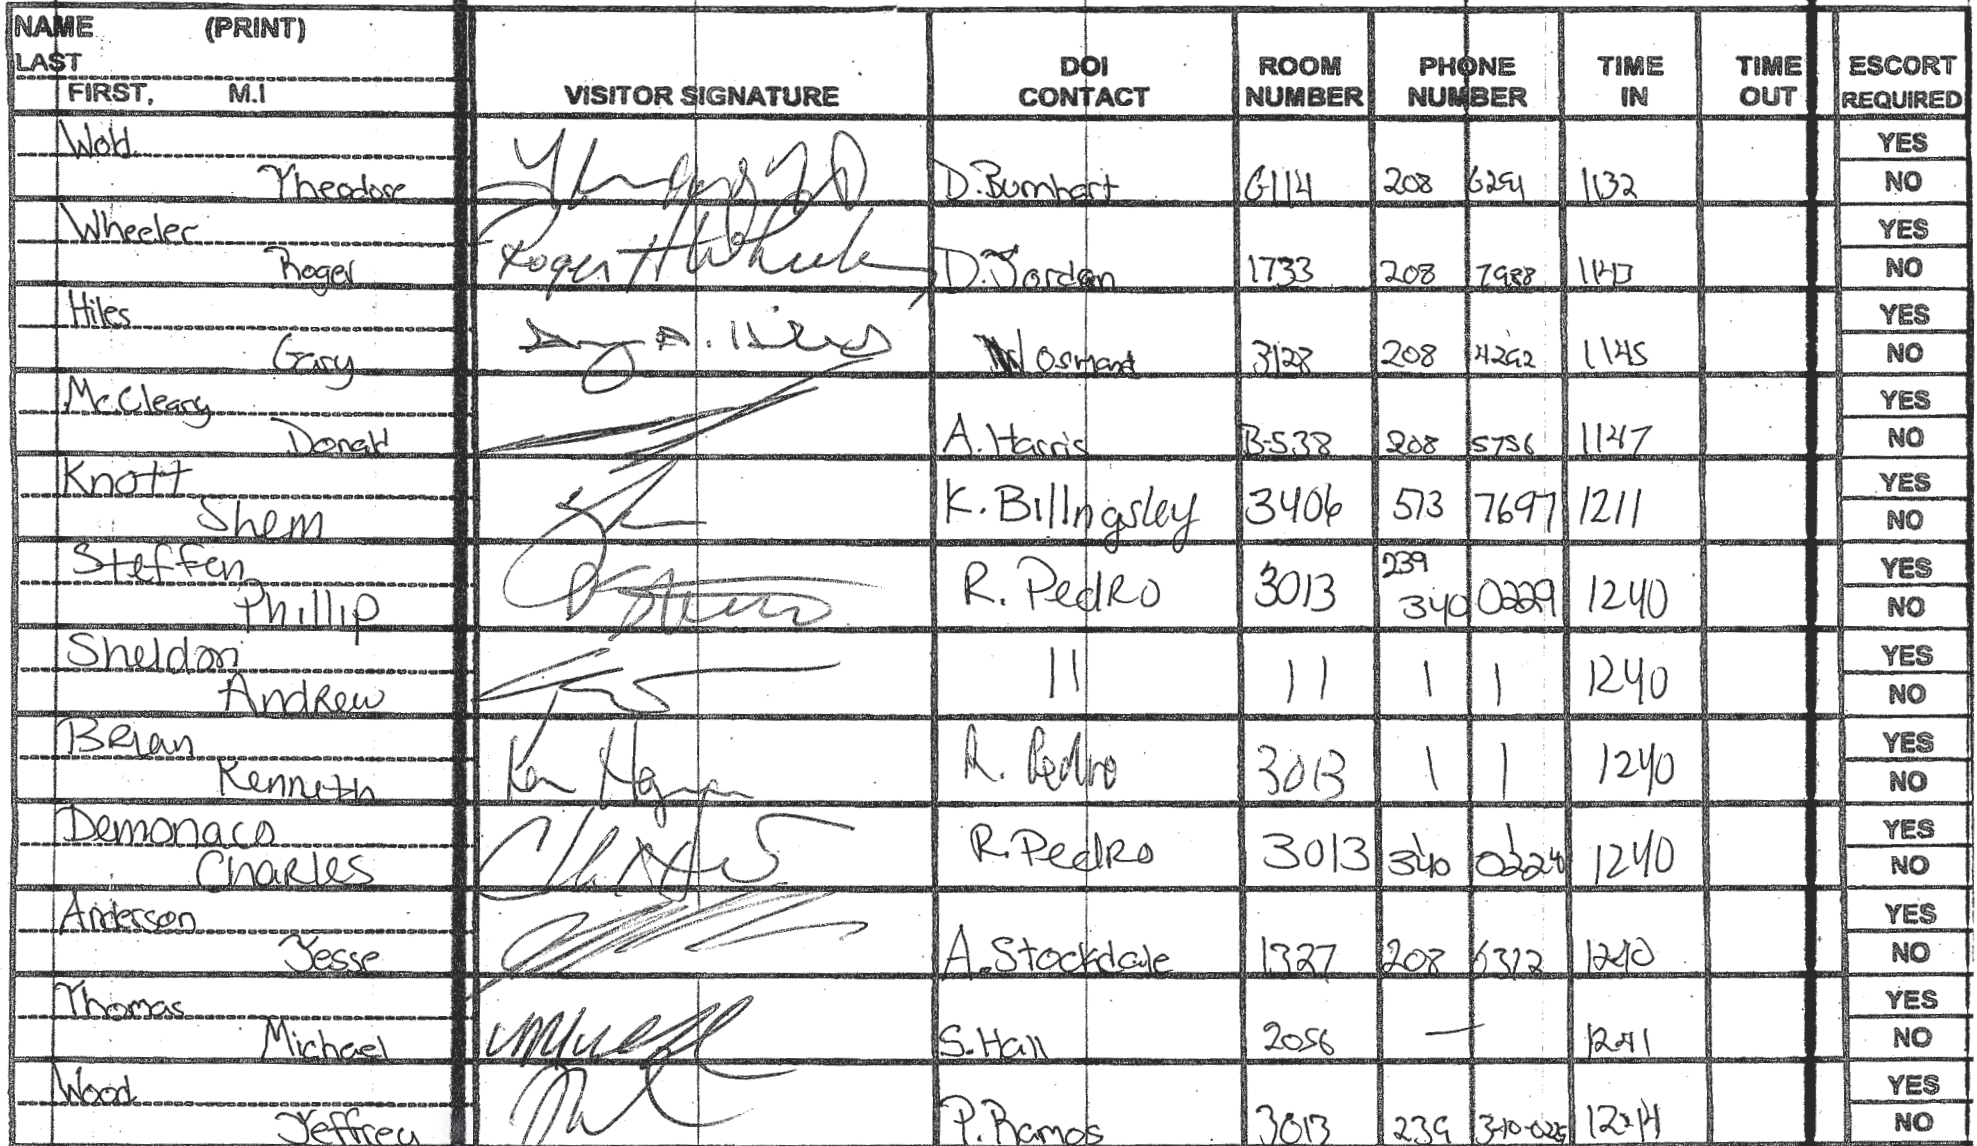 NAME (PRINT)
LAST
FIRST, M.I
VISITOR SIGNATURE
DOI CONTACT
ROOM NUMBER
PHONE NUMBER
TIME IN
TIME OUT
ESCORT REQUIRED
Wold YES
Theodore D. Burnhart 6114 208 6291 1132 NO
Wheeler YES
Roger Roger H Wheeler D. Jordan 1733 208 7988 1143 NO
Hiles YES
Gary Gary A. Hiles Osmand 3128 208 4292 1145 NO
McCleary YES
Donald A. Harris B-538 208 5756 1147 NO
Knott YES
Shem K. Billingsley 3406 513 7697 1211 NO
Steffen 239 YES
Phillip R. Pedro 3013 340 0229 1240 NO
Sheldon YES
Andrew 11 11 1 1 1240 NO
Brian YES
Kenneth R. Pedro 3013 1 1 1240 NO
Demonaco YES
Charles R. Pedro 3013 340 0224 1240 NO
Anderson YES
Jesse A. Stockdale 1327 208 6312 1240 NO
Thomas YES
Michael S. Hall 2056 — 1241 NO
Wood YES
Jeffrey P. Ramos 3013 239 1244 NO